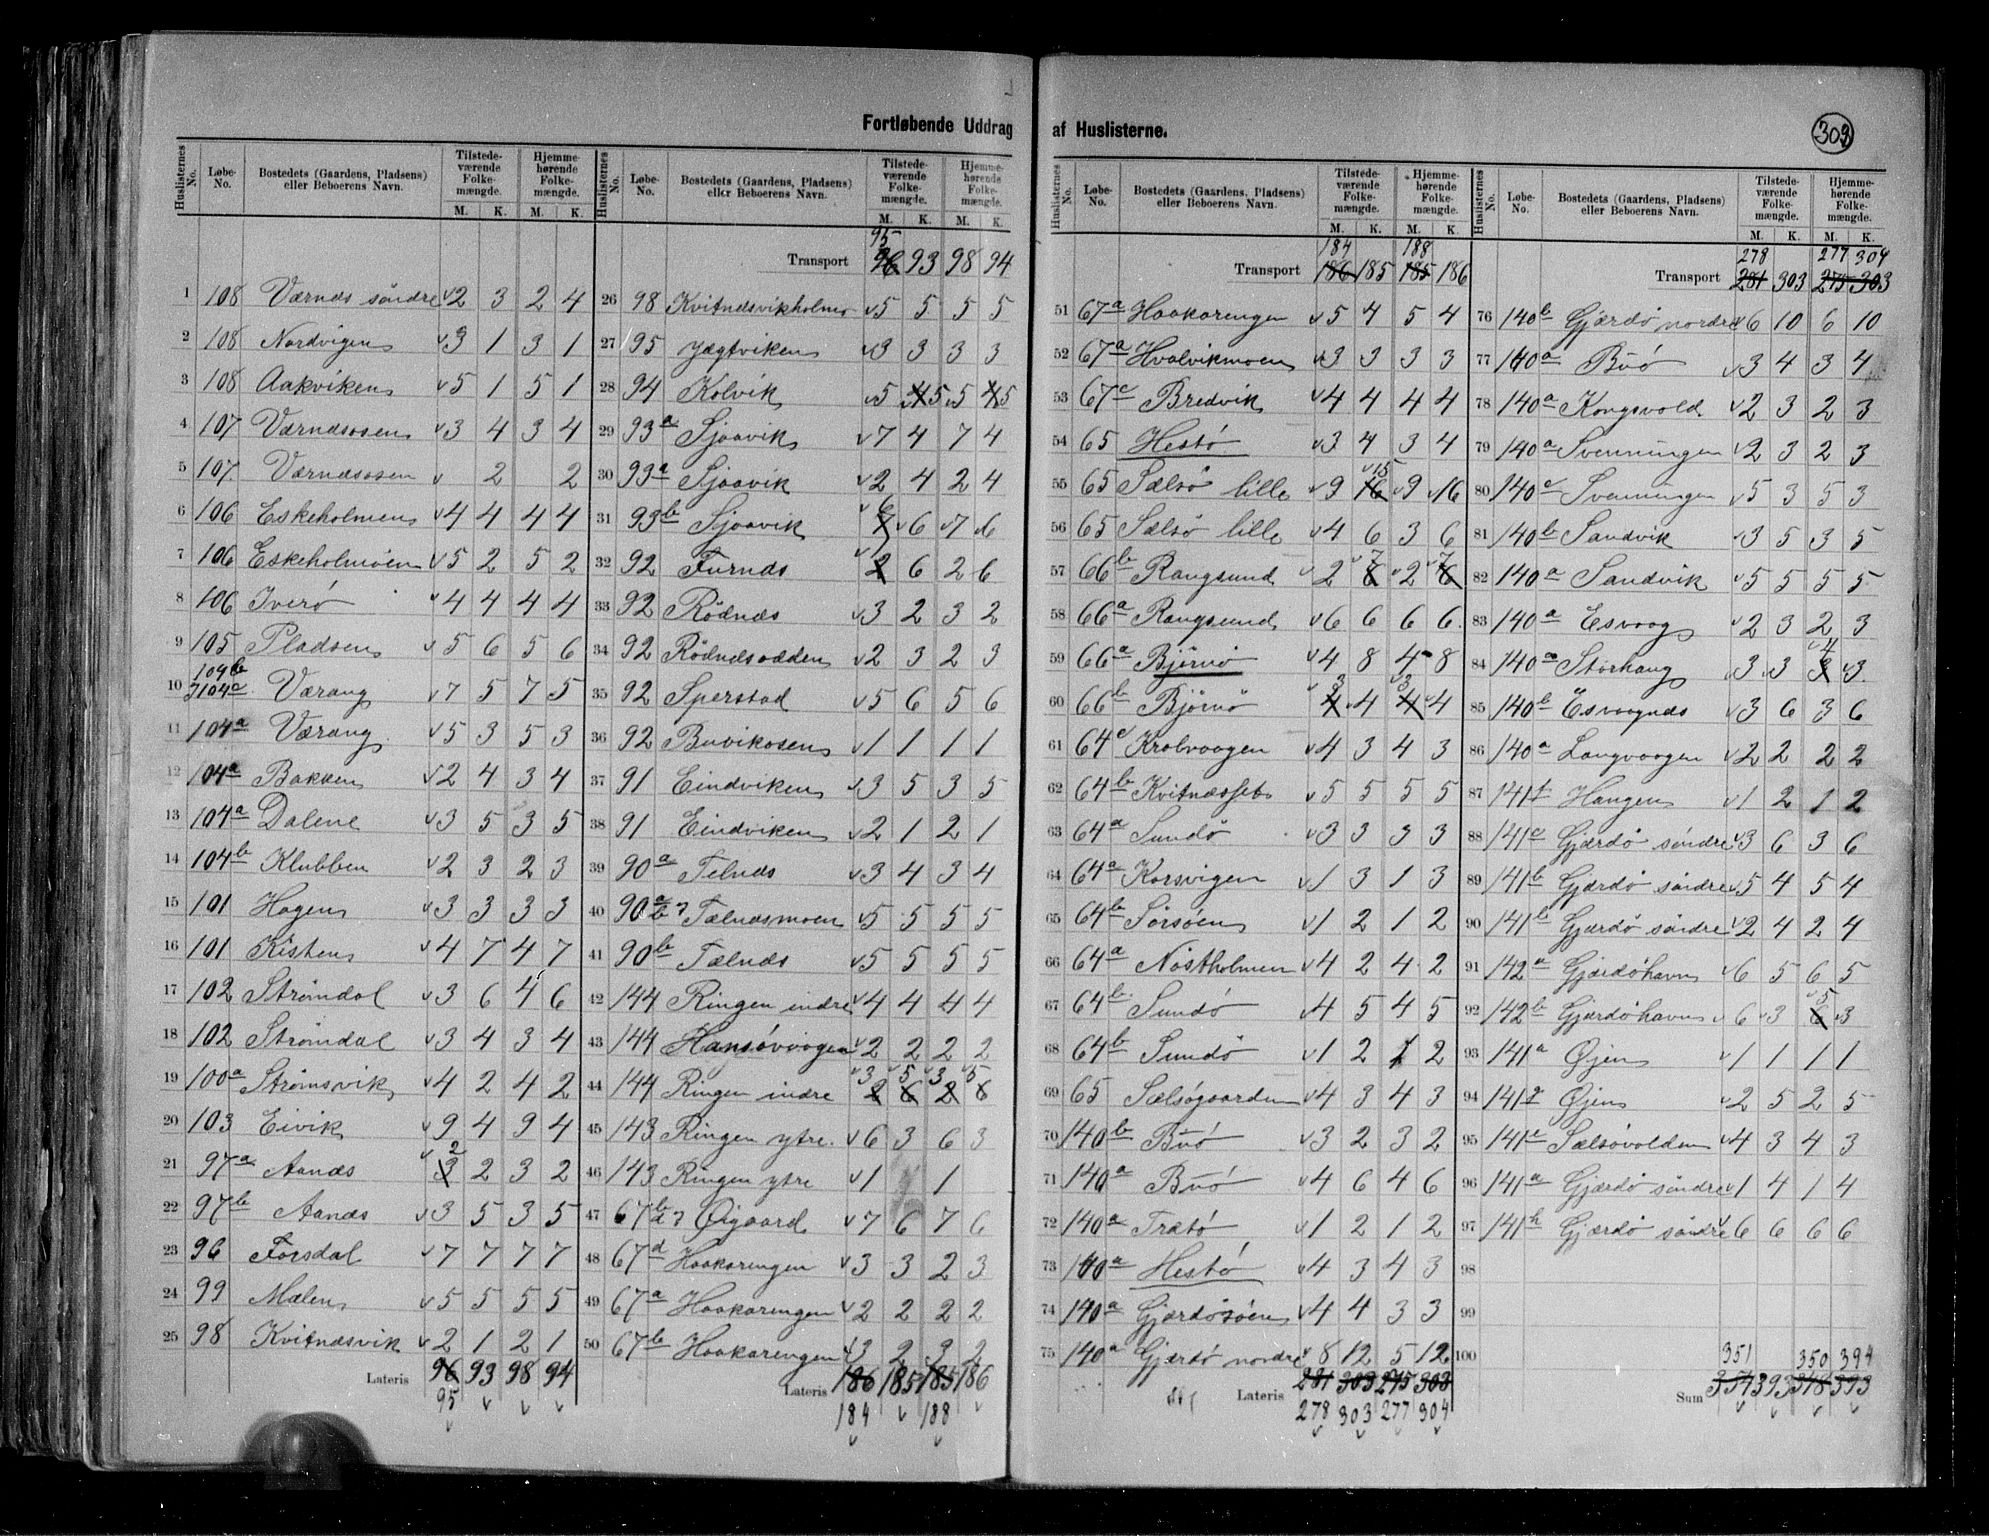 Fortløbende Uddrag af Huslisterne.
309
Huslisternes No. Løbe-No. Bostedets (Gaardens, Pladsens) eller Beboerens Navn. Tilstedeværende Folkemængde. M. K. Hjemmehørende Folkemængde. M. K.
1 108 Værnes söndre v2 3 2 4
2 108 Nordvigen v3 1 3 1
3 108 Aakviken v5 1 5 1
4 107 Værnesosen v3 4 3 4
5 107. Værnesosen v 2 2
6 106 Eskeholmen v4 4 4 4
7 106 Eskeholmöen v5 2 5 2
8 106 Iverö v4 4 4 4
9 105 Pladsen v5 6 5 6
10 104b 104a Værang v7 5 7 5
11 104a Værang v5 3 5 3
12 104a Bakken v2 4 3 4
13 104a Dalene v3 5 3 5
14 104b Klubben v2 3 2 3
15 101 Hagen v3 3 3 3
16 101 Kisten v4 7 4 7
17 102 Strömdal v3 6 4 6
18 102 Strömdal v3 4 3 4
19 100a Strömsvik v4 2 4 2
20 103 Eivik v9 4 9 4
21 97a Aanæs v 3 2 2 3 2
22 97b Aanæs v3 5 3 5
23 96 Forsdal v7 7 7 7
24 99 Mælen v5 5 5 5
25 98 Kvitnæsvik v2 1 2 1
Lateris 96 93 98 94
95
Huslisternes No. Løbe-No. Bostedets (Gaardens, Pladsens) eller Beboerens Navn. Tilstedeværende Folkemængde. M. K. Hjemmehørende Folkemængde. M. K.
95
Transport 96 93 98 94
26 98 Kvitnæsvikholmo v5 5 5 5
27 95 Jægtviken v3 3 3 3
28 94 Kolvik v5 4 5 v5 4 5
29 93a Sjaavik v7 4 7 4
30 93a Sjaavik v2 4 2 4
31 93b Sjaavik v 7 6 v6 v7 v6
32 92 Furnæs v 2 1 6 2 6
33 92 Rödnæs v3 2 3 2
34 92 Rödnæsodden v2 3 2 3
35 92 Sperstad v5 6 5 6
36 92 Buvikosen v1 1 1 1
37 91 Eindviken v3 5 3 5
38 91 Eindviken v2 1 2 1
39 90a Telnæs v3 4 3 4
40 90a b Tælnæsmoen v5 5 5 5
41 90b Tælnæs v5 5 5 5
42 144 Ringen indre v4 4 4 4
43 144 Hansövaagen v2 2 2 2
44 144 Ringen indre v3 v5 v3 v5 2 6 2 6
45 143 Ringen ytre. v6 3 6 3
46 143 Ringen ytre v1 1
47 67b d Öigaard v7 6 7 6
48 67d Haakaringen v3 3 2 3
49 67a Haakaringen v2 2 2 2
50 67b Haakaringen v3 2 3 2
Lateris 186 185 185 186
184 188
Huslisternes No. Løbe-No. Bostedets (Gaardens, Pladsens) eller Beboerens Navn. Tilstedeværende Folkemængde. M. K. Hjemmehørende Folkemængde. M. K.
184 188
Transport 186 185 185 186
51 67a Haakaringen v5 4 5 4
52 67a Hvalvikmoen v3 3 3 3
53 67c Bredvik v4 4 4 4
54 65 Hestö v3 4 3 4
55 65 Sælsö lille v9 16 v15 v9 v16
56 65 Sælsö lille v4 6 3 6
57 66b Rangsund v2 6 v7 v2 6 7
58 66a Rangsund v6 6 6 6.
59 66a Björnö v4 8 4 8
60 66b Björnö v 4 3 v4 4 3 v4
61 64c Krolvaagen v4 3 4 3
62 64b Kvitnæsset v5 5 5 5
63 64a Sundö v3 3 3 3
64 64a Korsvigen v1 3 1 3
65 64b Sörsöen v1 2 1 2
66 64a Nöstholmen v4 2 4 2
67 64b Sundö v4 5 4 5
68 64b Sundö v1 2 1 2
69 65 Sælsögaarden v4 3 4 3
70 140b Buö v3 2 3 2
71 140a Buö v4 6 4 6
72 140a Trætö v1 2 1 2
73 140a Hestö v4 3 4 3
74 140a Gjærdösöen v4 4 3 3
75 140a Gjærdö nordre v8 12 5 12
Lateris 281 303 275 303
278 303 277 304
Huslisternes No. Løbe-No. Bostedets (Gaardens, Pladsens) eller Beboerens Navn. Tilstedeværende Folkemængde. M. K. Hjemmehørende Folkemængde. M. K.
278 277 304
Transport 281 303 275 303
76 140b Gjærdö nordre v6 10 6 10
77 140a Buö v3 4 3 4
78 140a Kongsvold v2 3 2 3
79 140a Svenningen v2 3 2 3
80 140c Svenningen v5 3 5 3
81 140b Sandvik v3 5 3 5
82 140a Sandvik v5 5 5 5
83 140a Esvaag v2 3 2 3
84 140a Storhaug v3 v3 3 v4 v3
85 140b Esvaagnæs v3 6 3 6
86 140a Langvaagen v2 2 2 2
87 141f Haugen v1 2 1 2
88 141c Gjærdö söndre v3 6 3 6
89 141b Gjærdö söndre v5 4 5 4
90 141b Gjærdö söndre v2 4 2 4
91 142a Gjærdöhavn v6 5 6 5
92 142b Gjærdöhavn v6 v3 6 v5 v3
93 141a Øjen v1 1 1 1
94 141g Øjen v2 5 2 5
95 141e Sælsövolden v4 3 4 3
96 141a Gjærdö söndre v1 4 1 4
97 141h Gjærdö söndre v6 6 6 6
98
99
100
351 350 394
Sum 354 393 348 393